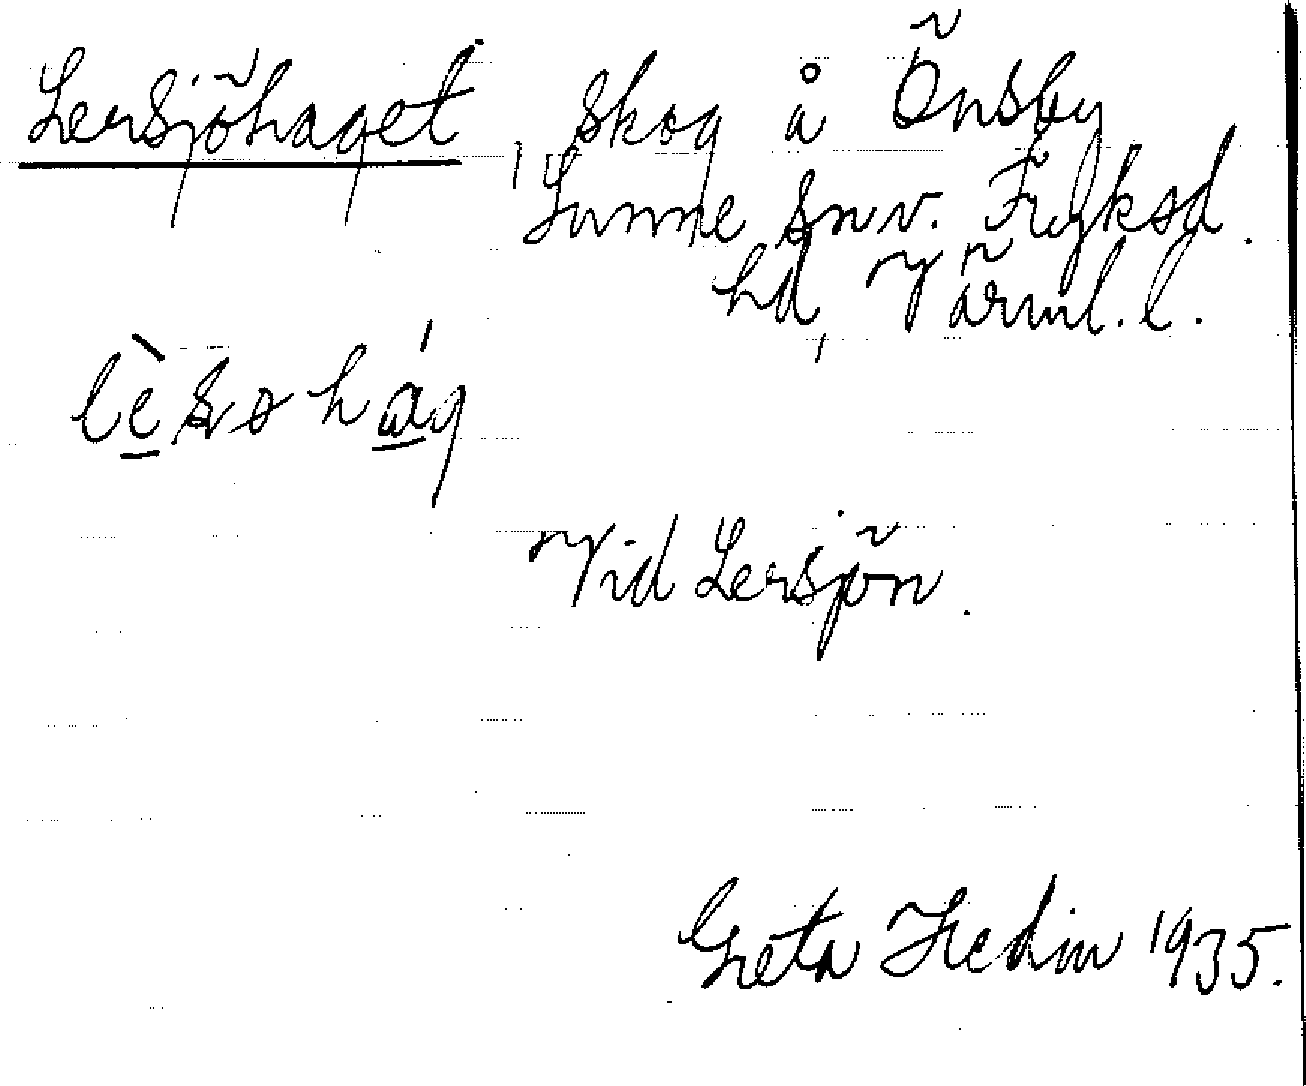 Lersjöhaget, skog å Önsby
Sunne snv. Fryksd.
hd, Värml. l.
Vid Lersjön.
Greta Hedin 1935.